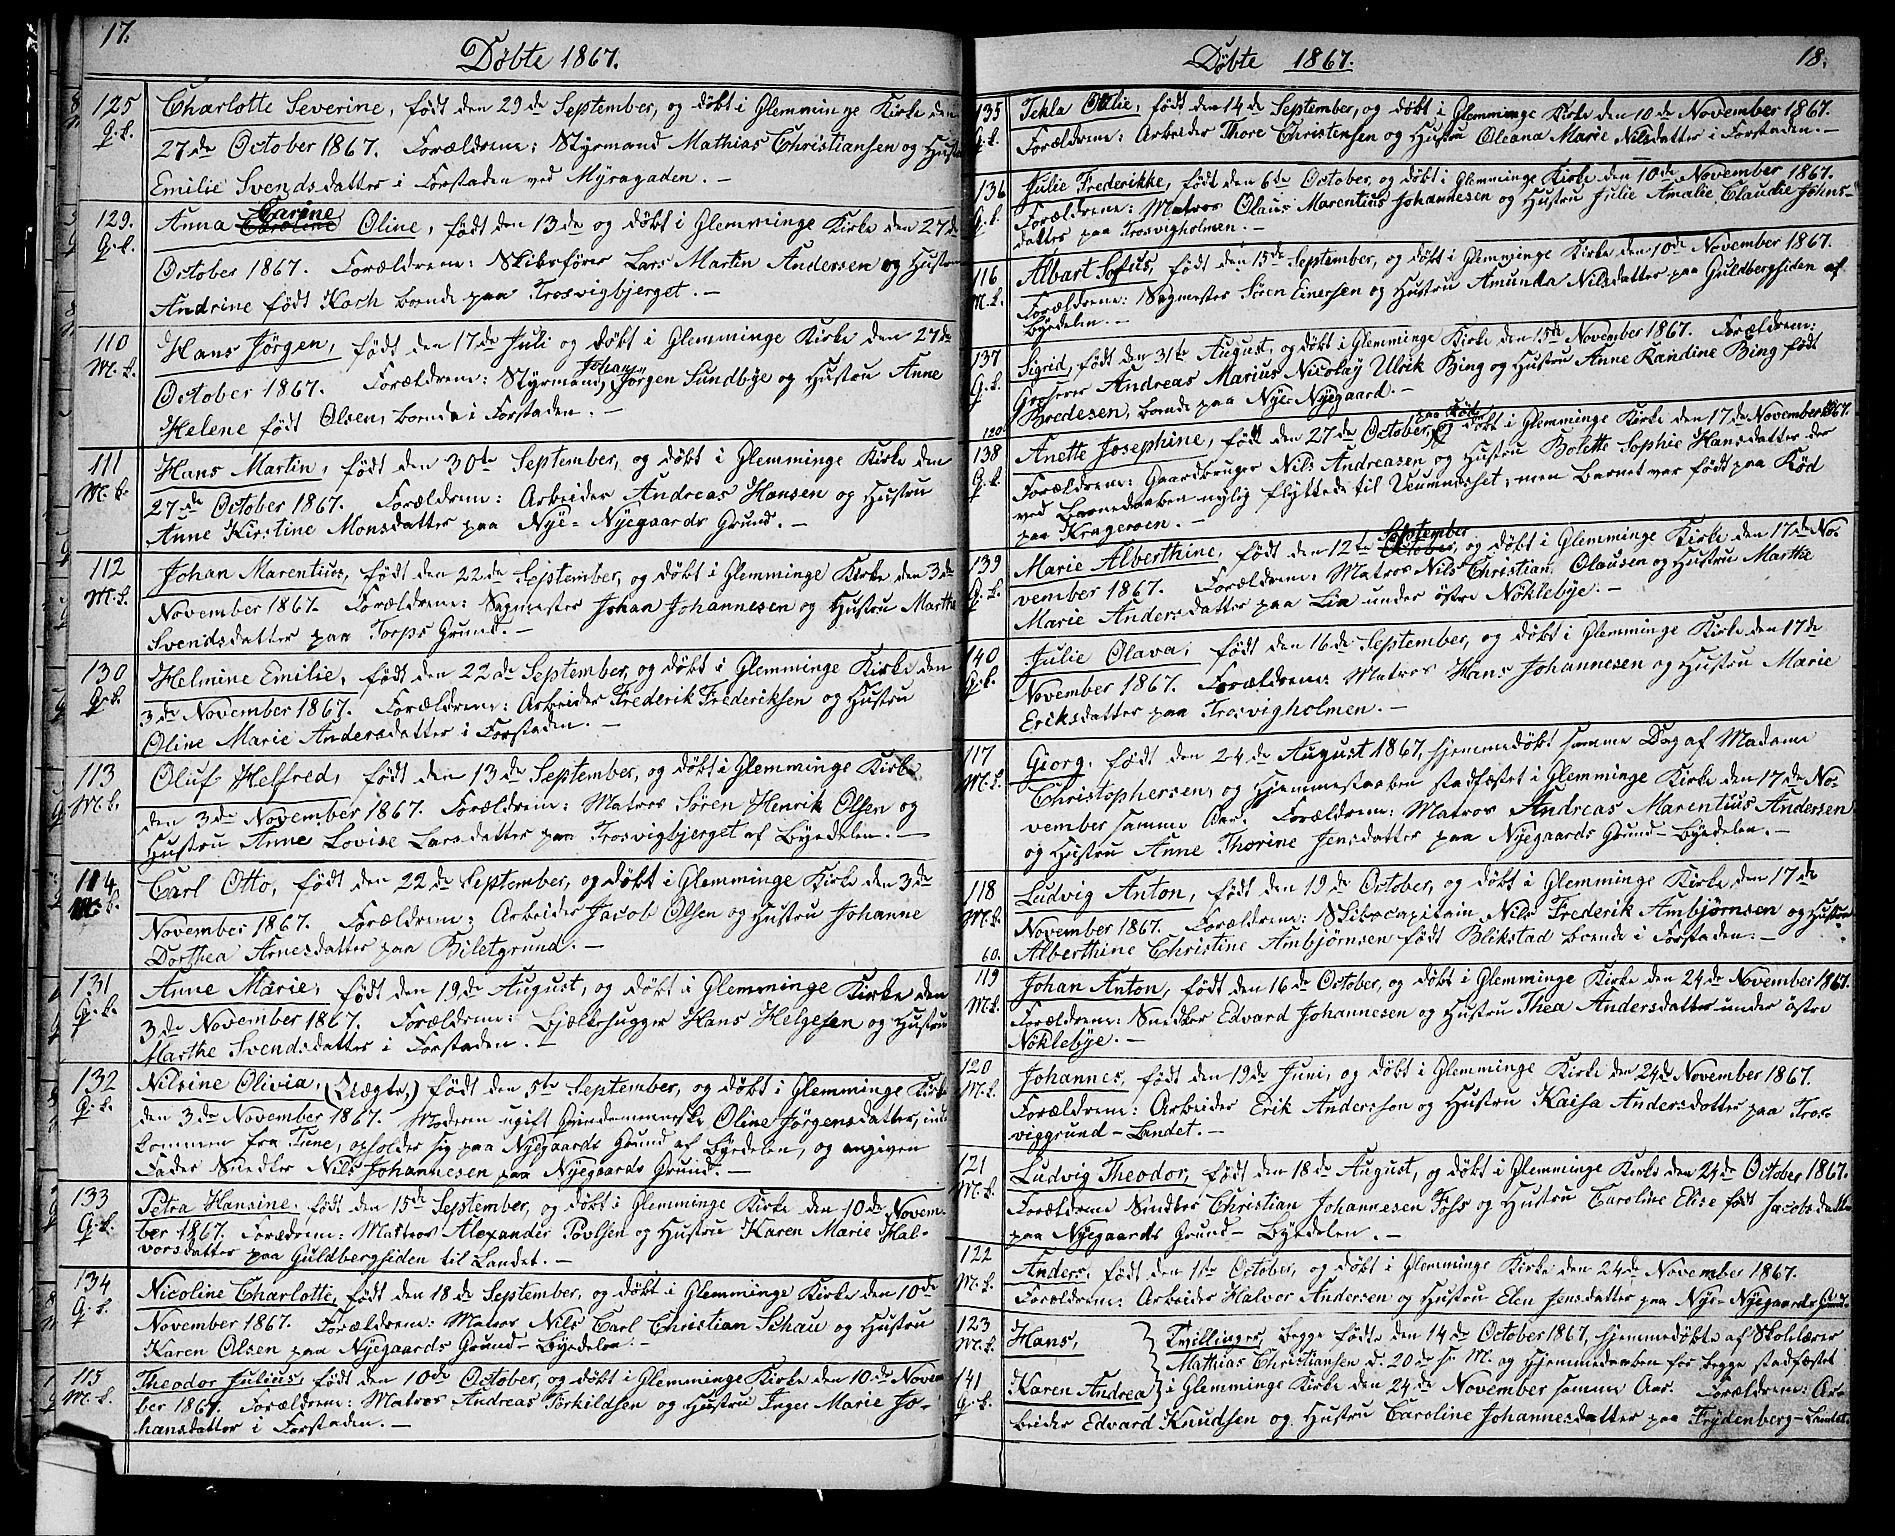 17.
Døbte 1867.
125
Q.k.
Charlotte Severine, født den 29de September, og døbt i Glemminge Kirke den
27de October 1867. Forældrene: Styrmand Mathias Christiansen og Hustru
Emilie Svendsdatter i Forstaden ved Myragaden. —
129.
Q.k.
Anna Caroline Carine Oline, født den 13de og døbt i Glemminge Kirke den 27de
October 1867. Forældrene: Skibsfører Lars Martin Andersen og Hustru
Andrine født Koch boende paa Trosvigbjerget. —
110
M.k.
Hans Jørgen, født den 17de Juli og døbt i Glemminge Kirke den 27de
October 1867. Forældrene: Styrmand Johan Jørgen Sundbye og Hustru Anne
Helene født Olsen, boende i Forstaden. —
111
M.k.
Hans Martin, født den 30te September, og døbt i Glemminge Kirke den
27de October 1867. Forældrene: Arbeider Andreas Hansen og Hustru
Anne Kirstine Monsdatter paa Nye-Nyegaards Grund. —
112
M.k.
Johan Marentius, født den 22de September, og døbt i Glemminge Kirke den 3de
November 1867. Forældrene: Sagmester Johan Johannesen og Hustru Marthe
Svendsdatter paa Torps Grund. —
130
Q.k.
Helmine Emilie, født den 22de September, og døbt i Glemminge Kirke den
3de November 1867. Forældrene: Arbeider Frederik Frederiksen og Hustru
Oline Marie Andersdatter i Forstaden. —
113
M.k.
Oluf Helfred, født den 13de September, og døbt i Glemminge Kirke
den 3de November 1867. Forældrene: Matros Søren Henrik Olsen og
Hustru Anne Lovise Larsdatter paa Trosvigbjerget af Byedelen. —
114
M.k.
Carl Otto, født den 22de September, og døbt i Glemminge Kirke den 3de
November 1867. Forældrene: Arbeider Jacob Olsen og Hustru Johanne
Dorthea Arnesdatter paa Biletgrund. —
131
Q.k.
Anne Marie, født den 19de August, og døbt i Glemminge Kirke den
3de November 1867. Forældrene: Bjælkehugger Hans Helgesen og Hustru
Marthe Svendsdatter i Forstaden. —
132
Q.k.
Nilsine Olivia, (Uægte,) født den 5te September, og døbt i Glemminge Kirke
den 3de November 1867. Moderen ugift Qvindemenneske Oline Jørgensdatter, ind-
kommen fra Tune, opholder sig paa Nyegaards Grund af Byedelen, og angiven
Fader Snedker Nils Johannesen paa Nyegaards Grund. —
133
Q.k.
Petra Hansine, født den 15de September, og døbt i Glemminge Kirke den 10de Novem-
ber 1867. Forældrene: Matros Alexander Povlsen og Hustru Karen Marie Hal-
vorsdatter paa Guldbergsiden til Landet. —
134
Q.k.
Nicoline Charlotte, født den 18de September, og døbt i Glemminge Kirke den 10de
November 1867. Forældrene: Matros Nils Carl Christian Schau og Hustru
Karen Olsen paa Nyegaards Grund – Byedelen. —
115
M.k.
Theodor Julius, født den 10de October, og døbt i Glemminge Kirke den 10de Novem
ber 1867. Forældrene: Matros Andreas Torkildsen og Hustru Inger Marie Jo-
hansdatter i Forstaden. —
Døbte 1867.
18.
135
Q.k.
Tekla Otilie, født den 14de September, og døbt i Glemminge Kirke den 10de November 1867.
Forældrene: Arbeider Thore Christensen og Hustru Oleana Marie Nilsdatter i Forstaden. —
136
Q.k.
Julie Frederikke, født den 6te October, og døbt i Glemminge Kirke den 10de November 1867.
Forældrene: Matros Olaus Marentius Johannesen og Hustru Julie Amalie Claudie Johns-
datter paa Trosvigholmen. —
116
M.k.
Albart Sofius, født den 15de September, og døbt i Glemminge Kirke den 10de November 1867.
Forældrene: Sagmester Søren Einersen og Hustru Amunda Nilsdatter paa Guldbergsiden af
Byedelen. —
137
Q.k.
Sigrid, født den 31te August, og døbt i Glemminge Kirke den 15de November 1867. Forældrene:
Grosserer Andreas Marius Nicolay Ulrik Bing og Hustru Anne Randine Bing født
Bredesen, boende paa Nye-Nyegaard. —
120
138
Q.k.
Anette Josephine, født den 27de October paa Kød og døbt i Glemminge Kirke den 17de November 1867.
Forældrene: Gaardbruger Nils Andreasen og Hustru Bolette Sophie Hansdatter der
ved Barnedaaben nylig flyttede til Veumneset, men Barnet var født paa Kød
paa Kragerøen. —
139
Q.k.
Marie Alberthine, født den 12te October September, og døbt i Glemminge Kirke den 17de No-
vember 1867. Forældrene: Matros Nils Christian Olausen og Hustru Marthe
Marie Andersdatter paa Lia under østre Nøklebye. —
140
Q.k.
Julie Olava, født den 16de September, og døbt i Glemminge Kirke den 17de
November 1867. Forældrene: Matros Hans Johannesen og Hustru Marie
Eriksdatter paa Trosvigholmen. —
117
M.k.
Georg, født den 24de August 1867, hjemmedøbt samme Dag af Madame
Christophersen, og Hjemmedaaben stadfæstet i Glemminge Kirke den 17de No-
vember samme Aar. Forældrene: Matros Andreas Marentius Andersen
og Hustru Anne Thorine Jensdatter paa Nyegaards Grund – Byedelen. —
118
M.k.
Ludvig Anton, født den 19de October, og døbt i Glemminge Kirke den 17de
November 1867. Forældrene: Skibscapitain Nils Frederik Ambjørnsen og Hustru
60.
Alberthine Christine Ambjørnsen født Blikstad boende i Forstaden. —
119
M.k.
Johan Anton, født den 16de October, og døbt i Glemminge Kirke den 24de November 1867.
Forældrene: Snedker Edvard Johannesen og Hustru Thea Andersdatter under østre
Nøklebye. —
120
M.k.
Johannes, født den 19de Juni, og døbt i Glemminge Kirke den 24de November 1867.
Forældrene: Arbeider Erik Andersson og Hustru Kaisa Andersdotter paa Tros-
viggrund – Landet. —
121
M.k.
Ludvig Theodor, født den 18de August, og døbt i Glemminge Kirke den 24de October 1867.
Forældrene Snedker Christian Johannesen Fohs og Hustru Caroline Elise født Jacobsdatter
paa Nyegaards Grund – Byedelen. —
122
M.k.
Anders, født den 1ste October, og døbt i Glemminge Kirke den 24de November 1867.
Forældrene: Arbeider Halvor Andersen og Hustru Elen Jensdatter paa Nye-Nyegaards Grund.
123
M.k.
Hans, Tvillinger, begge fødte den 14de October 1867, hjemmedøbte af Skolelærer
Mathias Christiansen d. 20de s. M. og Hjemmedaaben for begge stadfæstet
141
Q.k.
Karen Andrea i Glemminge Kirke den 24de November samme Aar. Forældrene: Ar-
beider Edvard Knudsen og Hustru Caroline Johannesdatter paa Frydenberg – Landet.